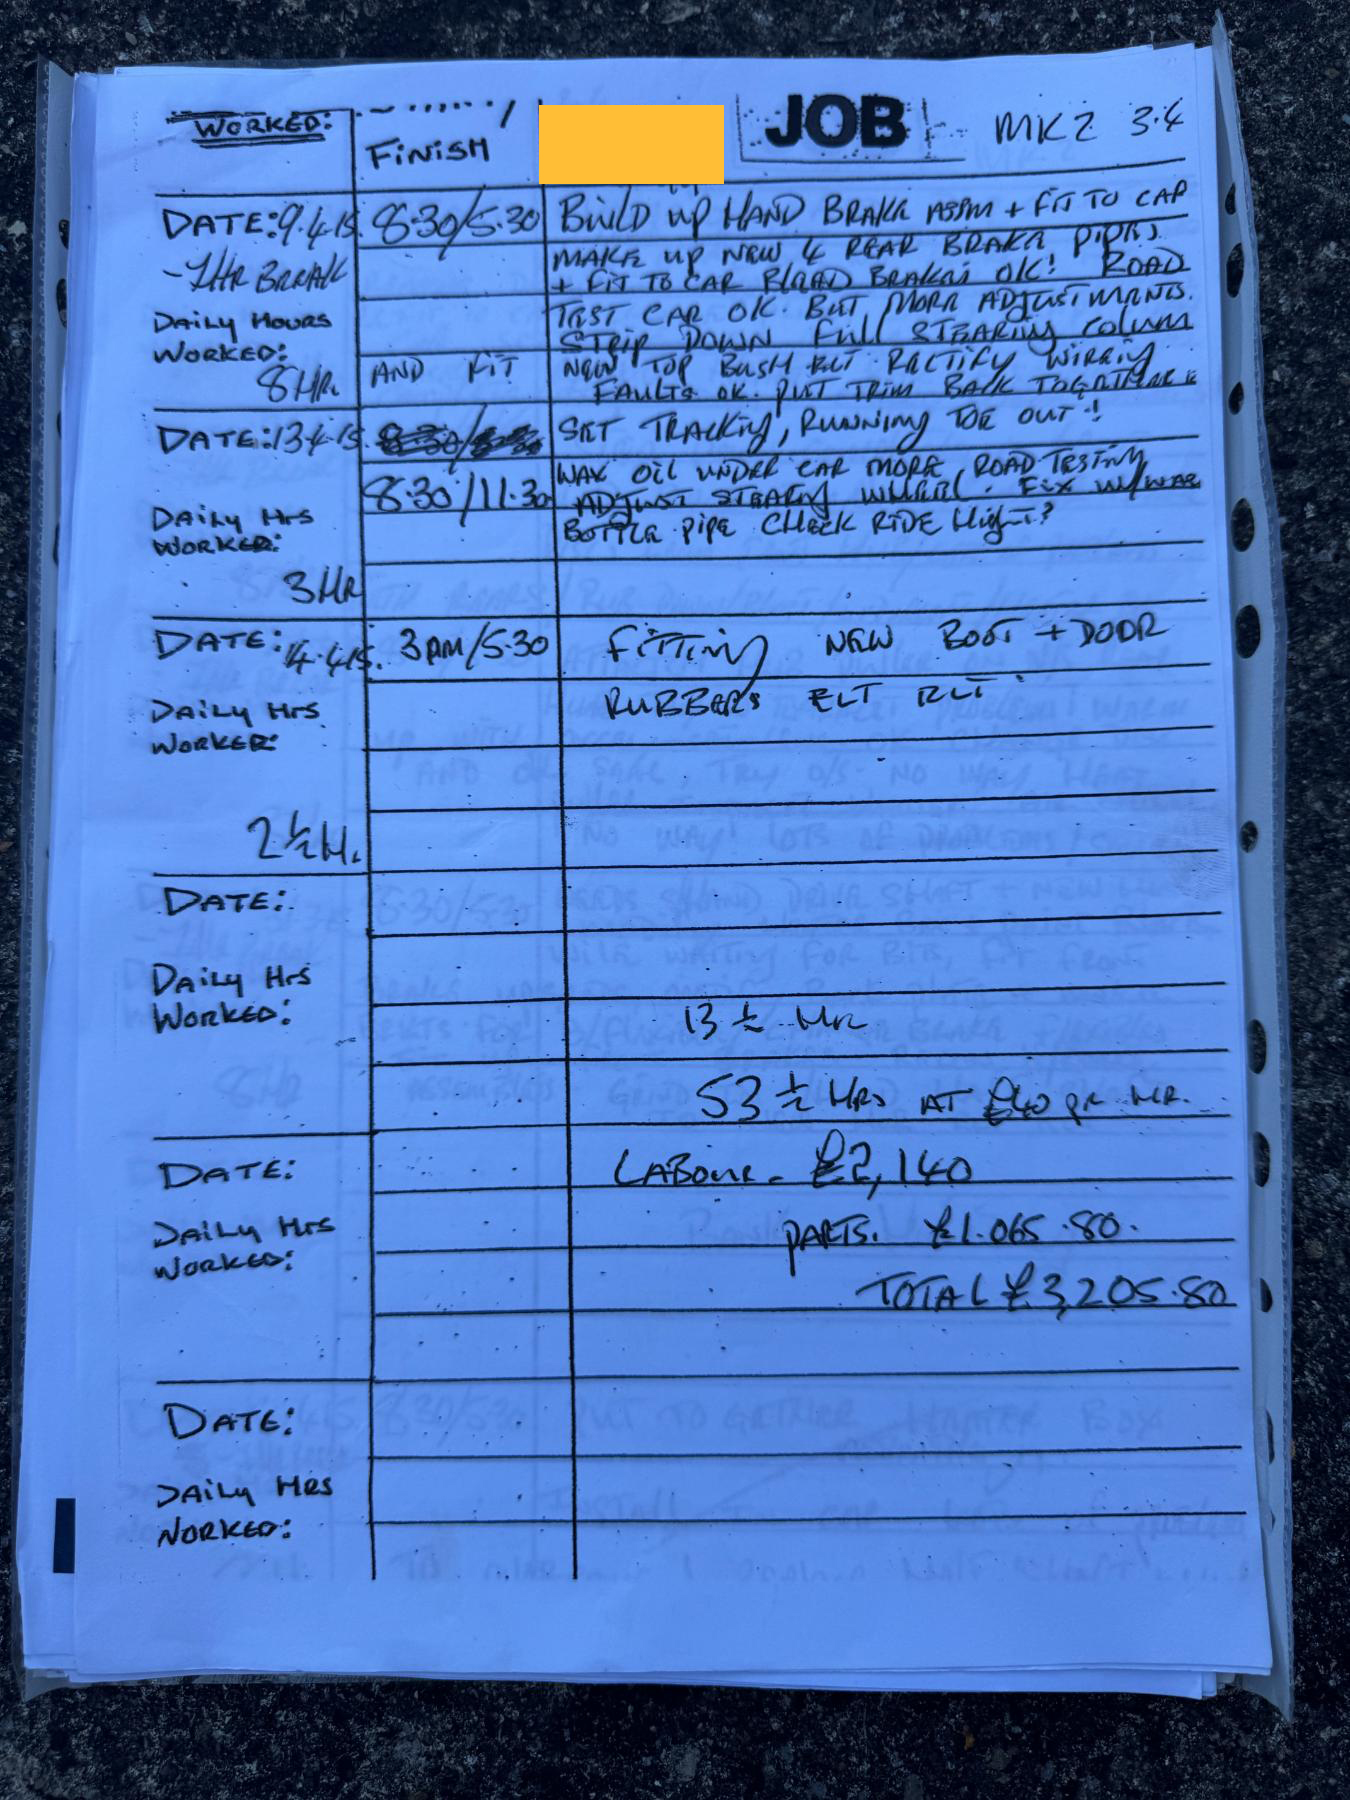 WORKED:
FINISH
JOB
MK2 3.4
DATE: 9.4.15. 8.30/5.30 BUILD UP HAND BRAKE ASSM + FIT TO CAR
- 1HR BREAK
MAKE UP NEW 4 REAR BRAKE PIPES
+ FIT TO CAR BLEED BRAKES OK! ROAD
DAILY HOURS
WORKED:
8HR.
TEST CAR OK. BUT MORE ADJUSTMENTS.
STRIP DOWN FULL STEARING COLUM
AND FIT NEW TOP BUSH ELT. RECTIFY WIRRING
FAULTS OK. PUT TRIM BACK TOGETHER
DATE: 13.4.15. SET TRACKING, RUNNING TOE OUT!
8.30/11.30 WAX OIL UNDER CAR MORE, ROAD TESTING
ADJUST STEARING WHEEL. FIX W/WAS
BOTTLE PIPE CHECK RIDE HIGHT?
DAILY HRS
WORKED:
3HR
DATE: 14.4.15. 3PM/5.30 FITTING NEW BOOT + DOOR
RUBBERS ELT ELT.
DAILY HRS
WORKED:
2 1/2 H.
DATE:
DAILY HRS
WORKED:
13 1/2 HR
53 1/2 HRS AT £40 PR HR.
DATE:
LABOUR. £2,140
DAILY HRS
WORKED:
PARTS. £1.065.80.
TOTAL £3,205.80
DATE:
DAILY HRS
WORKED: